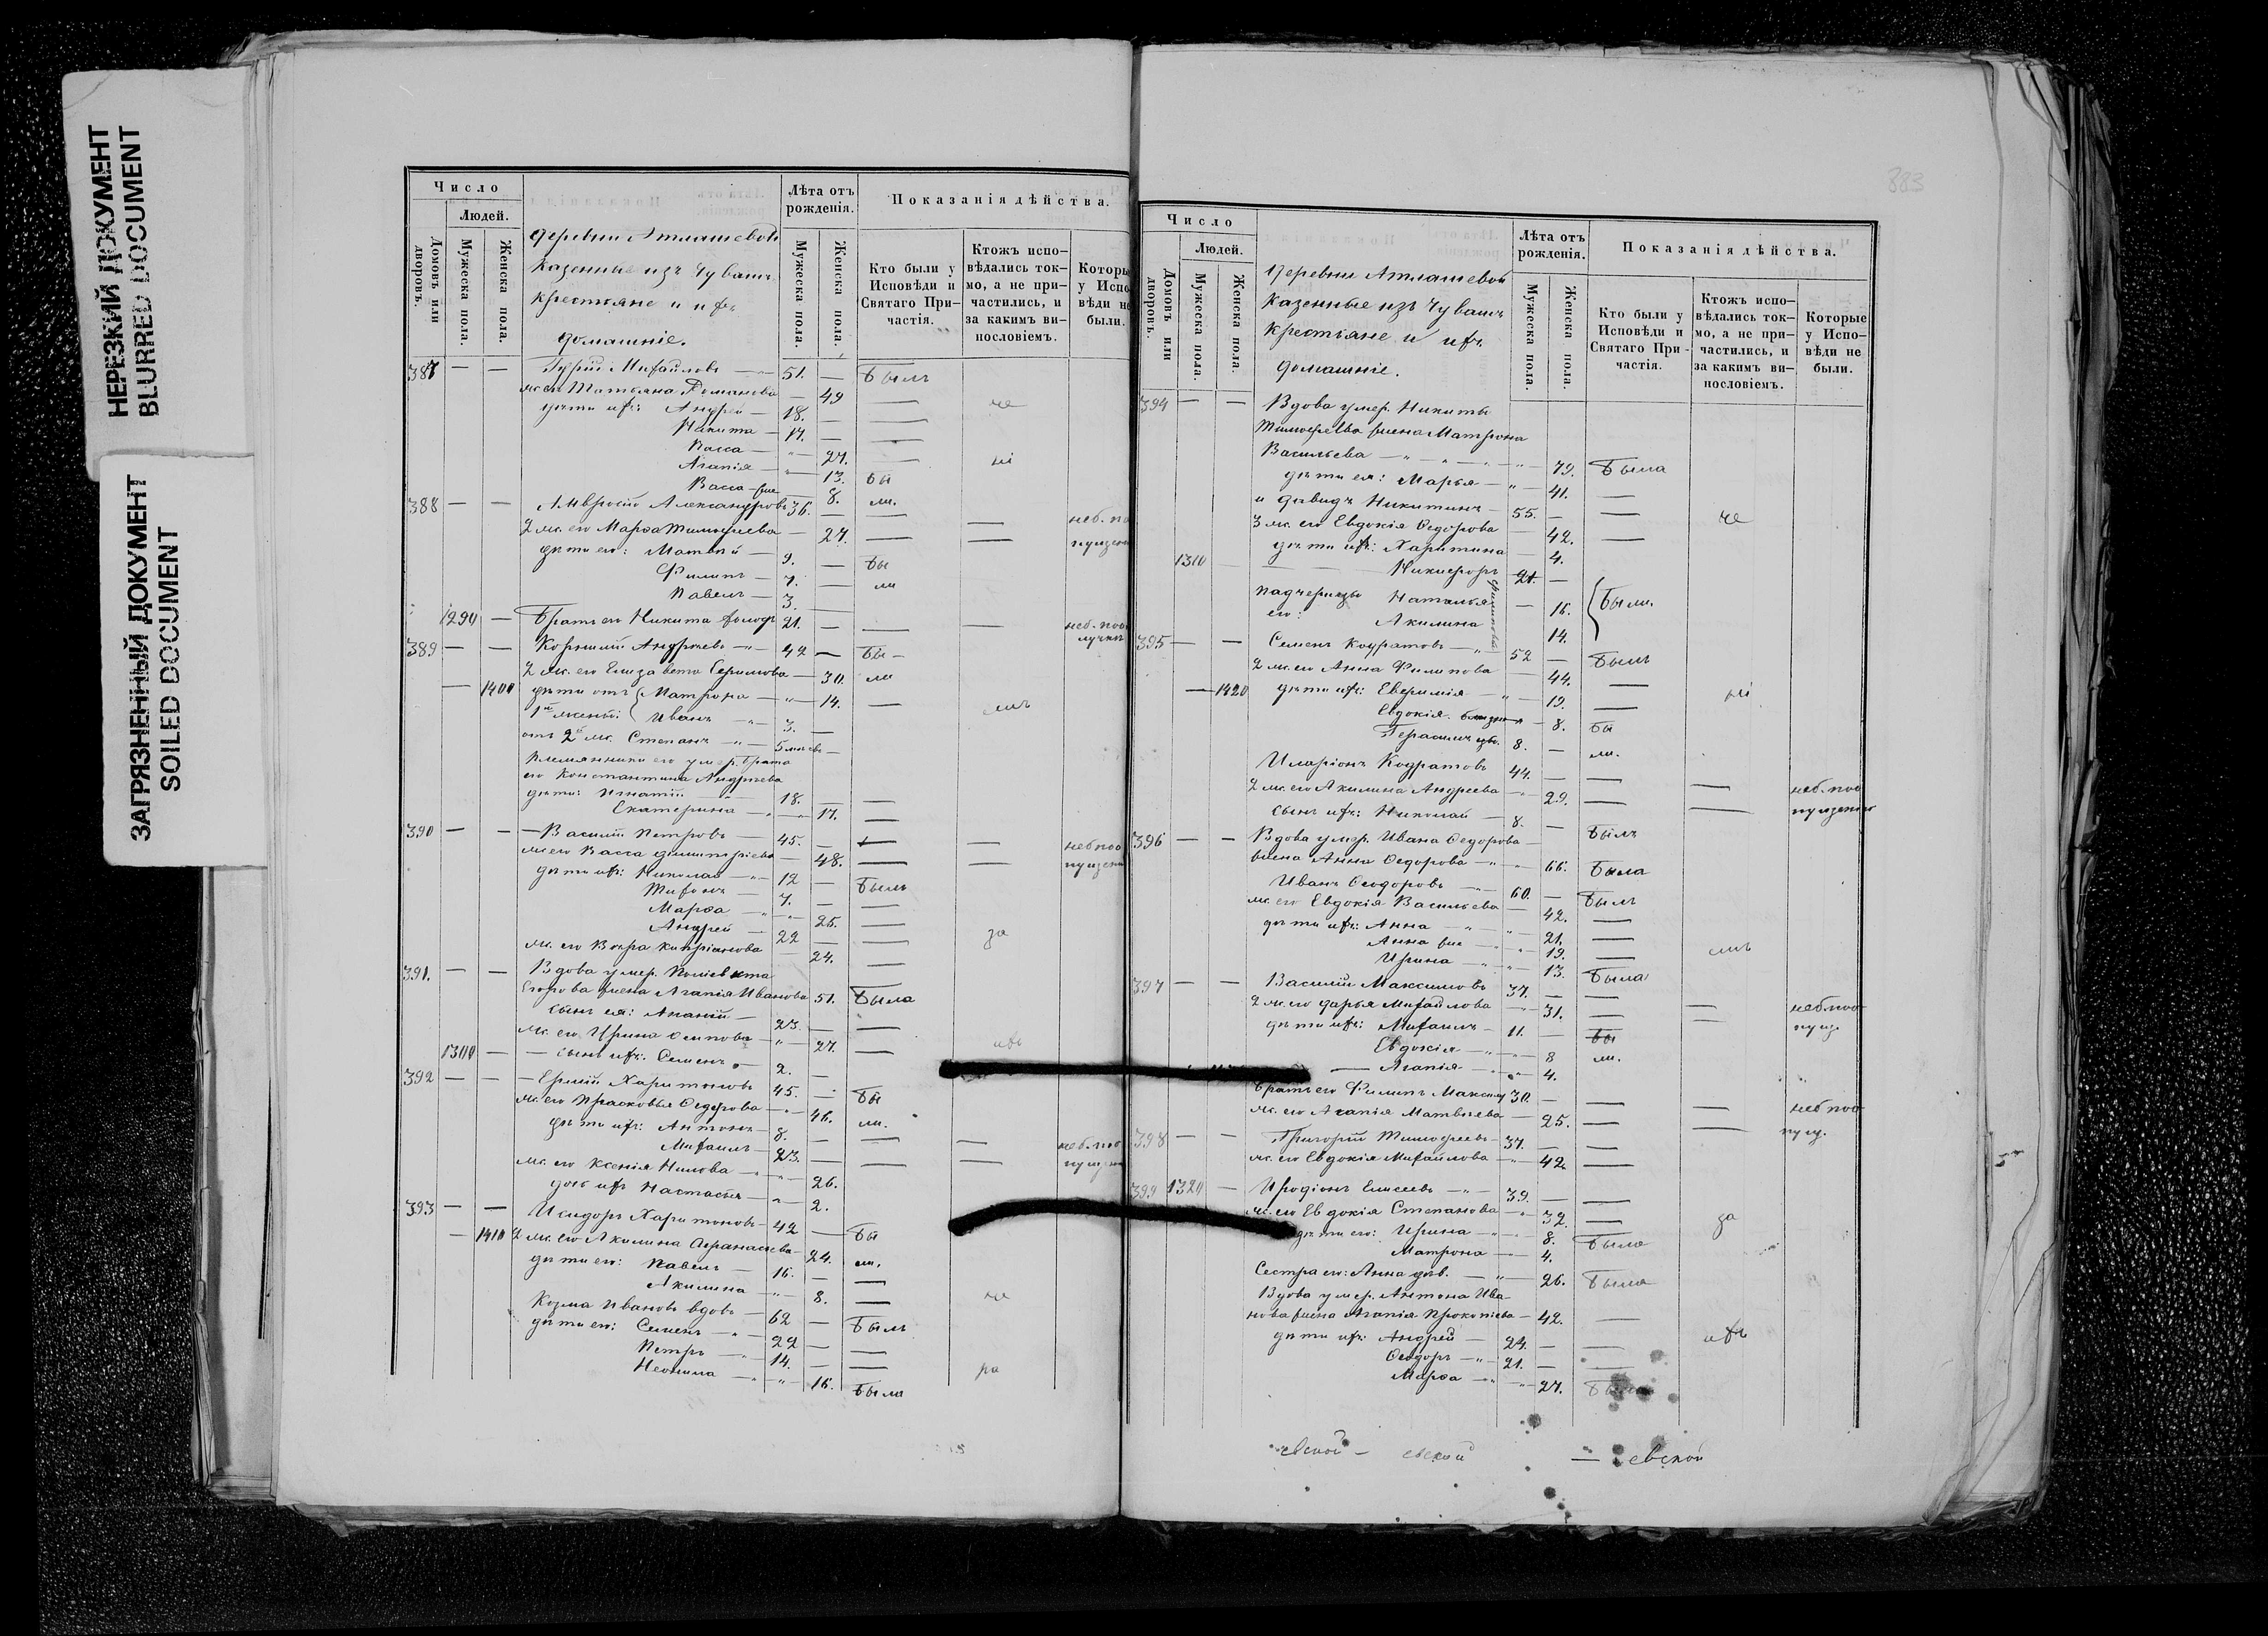 НЕРЕЗКИЙ ДОКУМЕНТ
BLURRED DOCUMENT
ЗАГРЯЗНЕННЫЙ ДОКУМЕНТ
SOILED DOCUMENT
Число
Людей.
Домовъ или дворовъ.
Мужеска пола.
Женска пола.
деревни Атлашевой
казенные изъ Чувашъ
крестьяне и ихъ
домашніе.
Лѣта отъ рожденія.
Мужеска пола.
Женска пола.
Показанія дѣйства.
Кто были у Исповѣди и Святаго Причастія.
Ктожъ исповѣдались токмо, а не причастились, и за какимъ винословіемъ.
Которы у Испо вѣди не были.
387 — — Гурій Михайловъ — 51. — Былъ
ж. его Татьяна Романова — 49 —
дѣти ихъ: Андрей — 18. — —
Никита — 17. — —
Васса — " — 27. —
Агапія — " — 13. Бы
Васса — 8. ли.
388 — — Амвросій Александровъ 36. — —
2 ж. его Марѳа Тимофеева — 27. — —
дѣти его: Матвей — 9. — Бы
Филипъ — 7. — ли
Павелъ — 3. —
1290 — Братъ его Никита 21. — — —
389 — — Андреевъ — 42 — Бы —
2 ж. его Елизавета — 30. ли
— 1400 дѣти отъ Матрона — " — 14. —
1й жены: Иванъ — " — 3. —
отъ 2й ж. Степанъ — " —
племянники его умер. брата
его Константина Андреева
дѣти: Игнатій — 18. — —
Екатерина — " — 17. —
390 — — Василій Петровъ — 45. — — —
ж. его Васса Димитріева — 48. — —
дѣти ихъ: Николай — " — 12 — Былъ
Тихонъ — 7. — —
Марѳа — " — 25. —
Андрей — 22 — —
ж. его Вѣра Кипріанова — 24. —
391. — — Вдова умер.
Егорова жена Агапія Иванова 51. Была
сынъ ея: Ананій — 23. — —
ж. его Ирина Осипова — " — 27. —
1300 — — сынъ ихъ: Семенъ — 2. —
392 — — — Ермій Харитоновъ 45. — Бы
ж. его Прасковья Ѳедорова — " — 46. ли.
дѣти ихъ: Антонъ — 8. — —
Михаилъ — 23. — — —
ж. его Ксенія Нилова — " — 26. — —
дочь ихъ Настасья — " — 2.
393 — — Исидоръ Харитоновъ — 42 — Бы
— 1410 2 ж. его Акилина Афанасьева — 24. ли.
дѣти его: Павелъ — 16. — —
Акилина — " — 8. —
Козма Ивановъ вдовъ — 62 — Былъ
дѣти его: Семенъ — " — 22 — —
Петръ — " — 14. — —
Неонила — " — 16. Была
383
Число
Людей.
Домовъ или дворовъ.
Мужеска пола.
Женска пола.
Деревни Атлашевой
казенные изъ Чувашъ
крестьяне и ихъ
домашніе.
Лѣта отъ рожденія.
Мужеска пола.
Женска пола.
Показанія дѣйства.
Кто были у Исповѣди и Святаго Причастія.
Ктожъ исповѣдались токмо, а не причастились, и за какимъ винословіемъ.
Которые у Исповѣди не были.
394 — — Вдова умер. Никиты
жена Матрона
Васильева — " — " — 79. Была
дѣти ея: Марья — " — 41. —
и Давидъ Никитинъ — 55. — —
3 ж. его Евдокія Ѳедорова — 42. —
дѣти ихъ: Харитина — 4.
1310 Никифоръ 21. —
падчерицы Наталья — 16. Были.
его: Акилина 14.
395 — — Семенъ Кодратовъ — " 52 — Былъ
2 ж. его Анна Филипова — 44. —
— 1420 дѣти ихъ: Евфимія — " — 19. —
Евдокія — 8. Бы
Герасимъ 8. — ли.
Иларіонъ Кодратовъ 44. — — —
2 ж. его Акилина Андреева — " — 29. — —
сынъ ихъ: Николай — 8. — Былъ
396 — — Вдова умер. Ивана Ѳедорова
жена Анна Ѳедорова — " — 66. Была
Иванъ Ѳеодоровъ — " 60. — Былъ
ж. его Евдокія Васильева — 42. —
дѣти ихъ: Анна — " — 21. —
Анна — " 19. —
Ирина — " — 13. Была
397 — — Василій Максимовъ 37. — — —
2 ж. его Дарья Михайлова — " — 31. — —
дѣти ихъ: Михаилъ — 11. — Бы
Евдокія — " — 8 ли.
— Агапія — " — 4.
Братъ его Филипъ 30. — — —
ж. его Агапія Матвеева — 25. — —
398 — — Григорій Тимофеевъ — 37. — —
ж. его Евдокія Михайлова — " — 42. —
399 1320 — Иродіонъ Елисеевъ — " — 39. — —
ж. его Евдокія Степанова — " — 32. —
дѣти его: Ирина — " — 8. Была
Матрона — 4.
Сестра его: Анна дѣв. — " — 26. Была
Вдова умер. Антона Ива-
нова жена Агапія Прокопіева — 42. —
дѣти ихъ: Андрей — 24. — —
Ѳеодоръ — " — 21. — —
Марѳа — " — 27.
евской — евской — евской